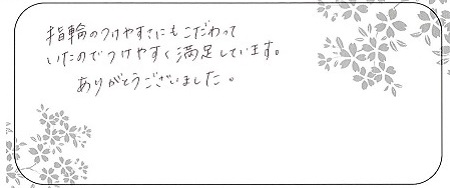 指輪のつけやすさにもこだわって
いたのでつけやすく満足しています。
ありがとうございました。